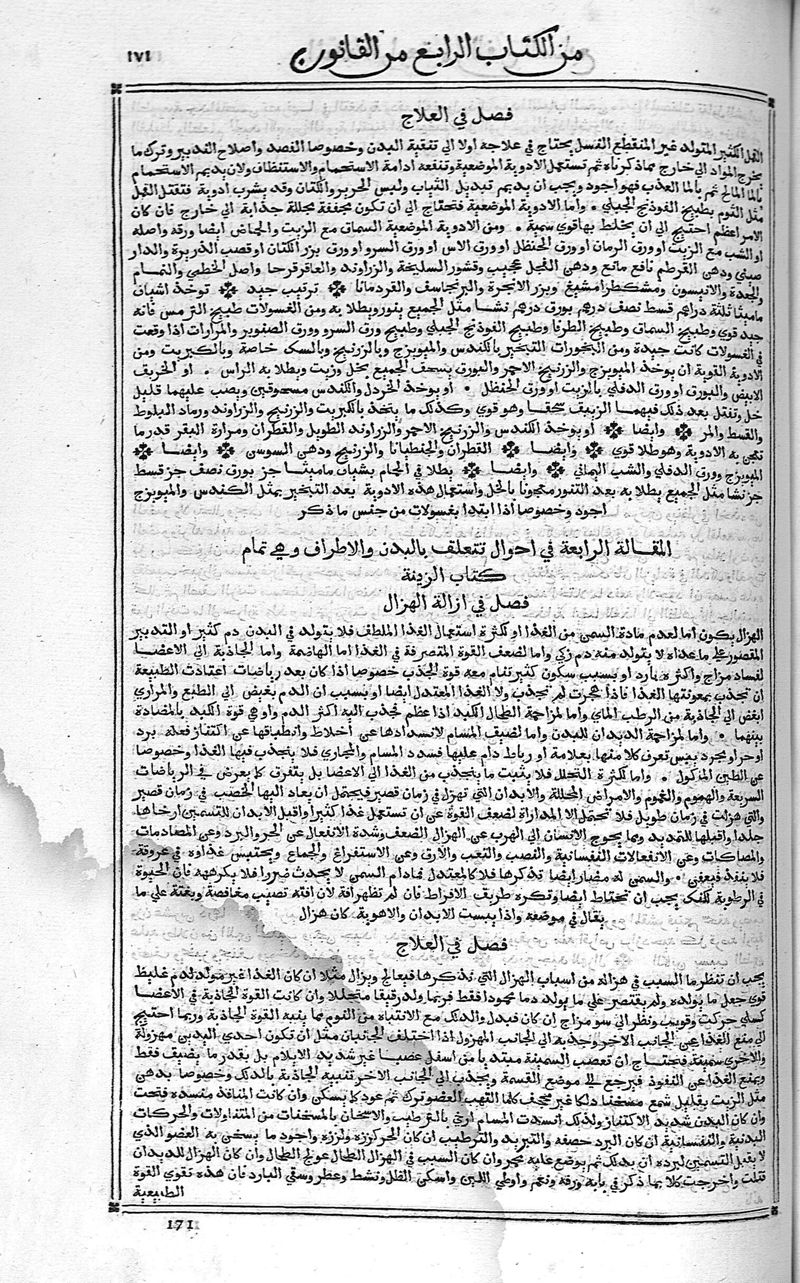 من الكتاب الرابع من القانون
١٧١
فصل في العلاج
القمل الكثير المتولد غير المنقطع النسل يحتاج في علاجه اولا الي تنقية البدن وخصوصا الفصد واصلاح التدبير وترك ما
يخرج المواد الي خارج مما ذكرناه ثم تستعمل الادوية الموضعية وتنفعه ادامة الاستحمام والاستنظاف ولان يديم الاستحمام
بالما المالح ثم بالما العذب فهو اجود ويجب ان يديم تبديل الثياب ولبس الحرير والكتان وقد يشرب ادوية فتقتل القمل
مثل الثوم بطبيخ الفوذنج الجبلي واما الادوية الموضعية فتحتاج الي ان تكون مجففة محللة جذابة الي خارج فان كان
الامر اعظم احتيج الي ان يخلط بها قوي سمية ومن الادوية الموضعية السماق مع الزيت والحماض ايضا ورقه واصله
او الشب مع الزيت او ورق الرمان او ورق الحنظل او ورق الاس او ورق السرو او ورق بزر الكتان او قصب الذريرة والدار
صيني ودهن القرطم نافع مانع ودهن الفجل عجيب وقشور السليخة والزراوند والعاقرقرحا واصل الخطمي والنمام
والجعدة والانيسون ومشكطرامشيغ وبزر الانجرة والبرنجاسف والقردمانا ترتيب جيد توخذ اشياف
ماميثا ثلثة دراهم قسط نصف درهم بورق درهم نشا مثل الجميع ينور ويطلا به ومن الغسولات طبيخ الترمس فانه
جيد قوي وطبيخ السماق وطبيخ الطرفا وطبيخ الفوذنج الجبلي وطبيخ ورق السرو وورق الصنوبر والمرارات اذا وقعت
في الغسولات كانت جيدة ومن البخورات التبخير بالكندس والميويزج وبالزرنيخ وبالسك خاصة وبالكبريت ومن
الادوية القوية ان يوخذ الميويزج والزرنيخ الاحمر والبورق يسحف الجميع بخل وزيت ويطلا به الراس او الخربق
الابيض والبورق او ورق الدفلي بالزيت او ورق الحنظل او يوخذ الخردل والكندس مسحوقين ويصب عليهما قليل
خل وتفتل بعد ذلك فيهما الزيبق سحقا وهو قوي وكذلك ما يتخذ بالكبريت والزرنيخ والزراوند ورماد البلوط
والقسط والمر وايضا او يوخذ الكندس والزرنيخ الاحمر والزراوند الطويل والقطران ومرارة البقر قدر ما
تعجن به الادوية وهو طلا قوي وايضا القطران والجنطيانا والزرنيخ ودهن السوسن وايضا
الميويزج وورق الدفلي والشب اليماني وايضا يطلا في الحمام بشياف ماميثا جز بورق نصف جز قسط
جز نشا مثل الجميع يطلا به بعد التنور معجونا بالخل واستعمال هذه الادوية بعد التبخير بمثل الكندس والميويزج
اجود وخصوصا اذا ابتدا بغسولات من جنس ما ذكر
المقالة الرابعة في احوال تتعلف بالبدن والاطراف وهي تمام
كتاب الزينة
فصل في ازالة الهزال
الهزال يكون اما لعدم مادة السمن من الغذا او لكثرة استعمال الغذا الملطف فلا يتولد في البدن دم كثير او التدبير
المقصور علي ما غذاه لا يتولد منه دم زكي واما لضعف القوة المتصرفة في الغذا اما الهاضمة واما الجاذبة الي الاعضا
لفساد مزاج واكثره بارد او بسبب سكون كثير تنام معه قوة الجذب خصوصا اذا كان بعد رياضات اعتادت الطبيعة
ان تجذب بمعونتها الغذا فاذا هجرت لم تجذب ولا الغذا المعتدل ايضا او بسبب ان الدم يغيض الي الطبع والمراري
ابغض الي الجاذبة من الرطب الماي واما لمزاحمة الطحال الكبد اذا عظم فجذب اليه اكثر الدم واوهي قوة الكبد بالمضادة
بينهما واما لمزاحمة الديدان للبدن واما لضيف المسام لانسدادها عن اخلاط وانطباقها عن اكتناز فعله برد
او حر او مجرد يبس تعرف كلا منها بعلامة او رباط دام عليها فسدد المسام والمجاري فلا ينجذب فيها الغذا وخصوصا
عن الطين الماكول واما لكثرة التحلل فلا يثبت ما ينجذب من الغذا الي الاعضا بل يتفرق كما يعرض في الرياضات
السريعة والهموم والغموم والامراض المحللة والابدان التي تهزل في زمان قصير فيحتمل ان يعاد اليها الخصب في زمان قصير
والتي هزلت في زمان طويل فلا تحتمل الا المداراة لضعف القوة عن ان تستعمل غذا كثيرا واقبل الابدان للتسمين ارخاها
جلدا واقبلها للتمديد ومما يحوج الانسان الي الهرب عن الهزال الضعف وشدة الانفعال عن الحر والبرد وعن المصادمات
والمصاكات وعن الانفعالات النفسانية والنصب والتعب والارق وعن الاستفراغ والجماع ويحتبس غذاوه في عروقه
فلا ينفذ فيعفن والسمن له مضار ايضا نذكرها فلا كالمعتدل فمادام السمن لا يحدث ضررا فلا يكرهنه فان الحيوة
في الرطوبة لكنه يجب ان يحتاط ايضا وتكره طريق الافراط فان لم تظهر افة لان افته تصيب مغافصة وبغتة علي ما
يقال في موضعه واذا يبست الابدان والاهوية كان هزال
فصل في العلاج
يجب ان تنظر ما السبب في هزاله من اسباب الهزال التي نذكرها فيعالج ويزال مثلا ان كان الغذا غير مولد لدم غليظ
قوي جعل ما يولده ولم يقتصر علي ما يولد دما محمودا فقط فربما ولد رقيقا متحللا وان كانت القوة الجاذبة في الاعضا
كسلي حركت وقويت ونظر الي سو مزاج ان كان فبدل والدلك مع الانتباه من النوم مما ينبه القوة الجاذبة وربما احتيج
الي منع الغذا عن الجانب الاخر وجذبه الي الجانب المهزول اذا اختلف الجانبان مثل ان تكون احدي اليدين مهزولة
والاخري سمينة فتحتاج ان تعصب السمينة مبتديا من اسفل عصبا غير شديد الايلام بل بقدر ما يضيف فقط
ويمنع الغذا عن النفوذ فيرجع الي موضع القسمة وينجذب الي الجانب الاخر تنبيه الجاذبة بالدلك وخصوصا بدهن
مثل الزيت بقليل شمع مسخنا دلكا غير مجحف كلما التهب العضو ترك ثم عود كما يسكن وان كانت المنافذ منسدة فتحت
وان كان البدن شديد الاكتناز ولذلك انسدت المسام ارخي بالترطيب والاسخان بالمسخنات من المتناولات والحركات
البدنية والنفسانية ان كان البرد حصفه والتبريد والترطيب ان كان الحر كززه ولززه واجود ما يسخن به العضو الذي
لا يقبل التسمين لبرده ان يدلك ثم يوضع عليه محمر وان كان السبب في الهزال الطحال عولج الطحال وان كان الهزال للديدان
قتلت واخرجت كلا بما ذكر في بابه ورفه ونعم واوطي اللين واسكن الظل ونشط وعطر وسقي البارد فان هذه تقوي القوة
الطبيعية
171